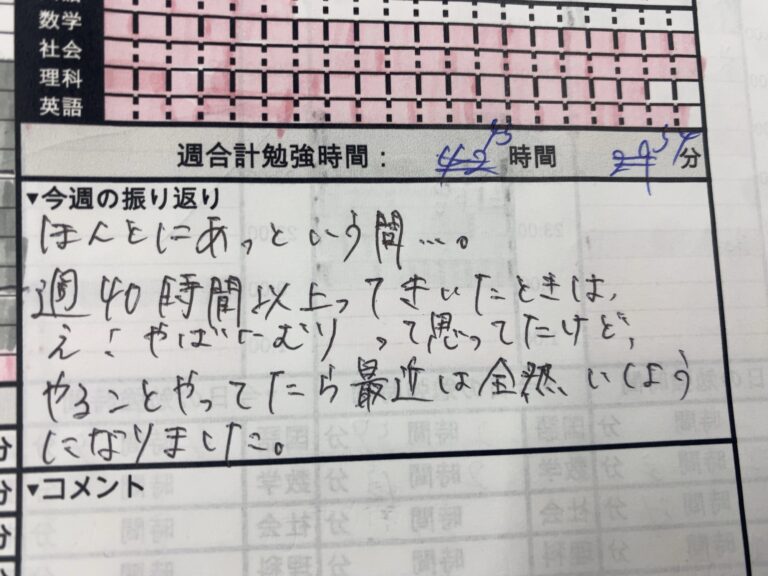 数学
社会
理科
英語
週合計勉強時間： 43 時間 54 分
▼今週の振り返り
ほんとにあっという間…。
週40時間以上ってきいたときは、
え！やばにむり って思ってたけど、
やることやってたら最近は全然いけるよう
になりました。
▼コメント